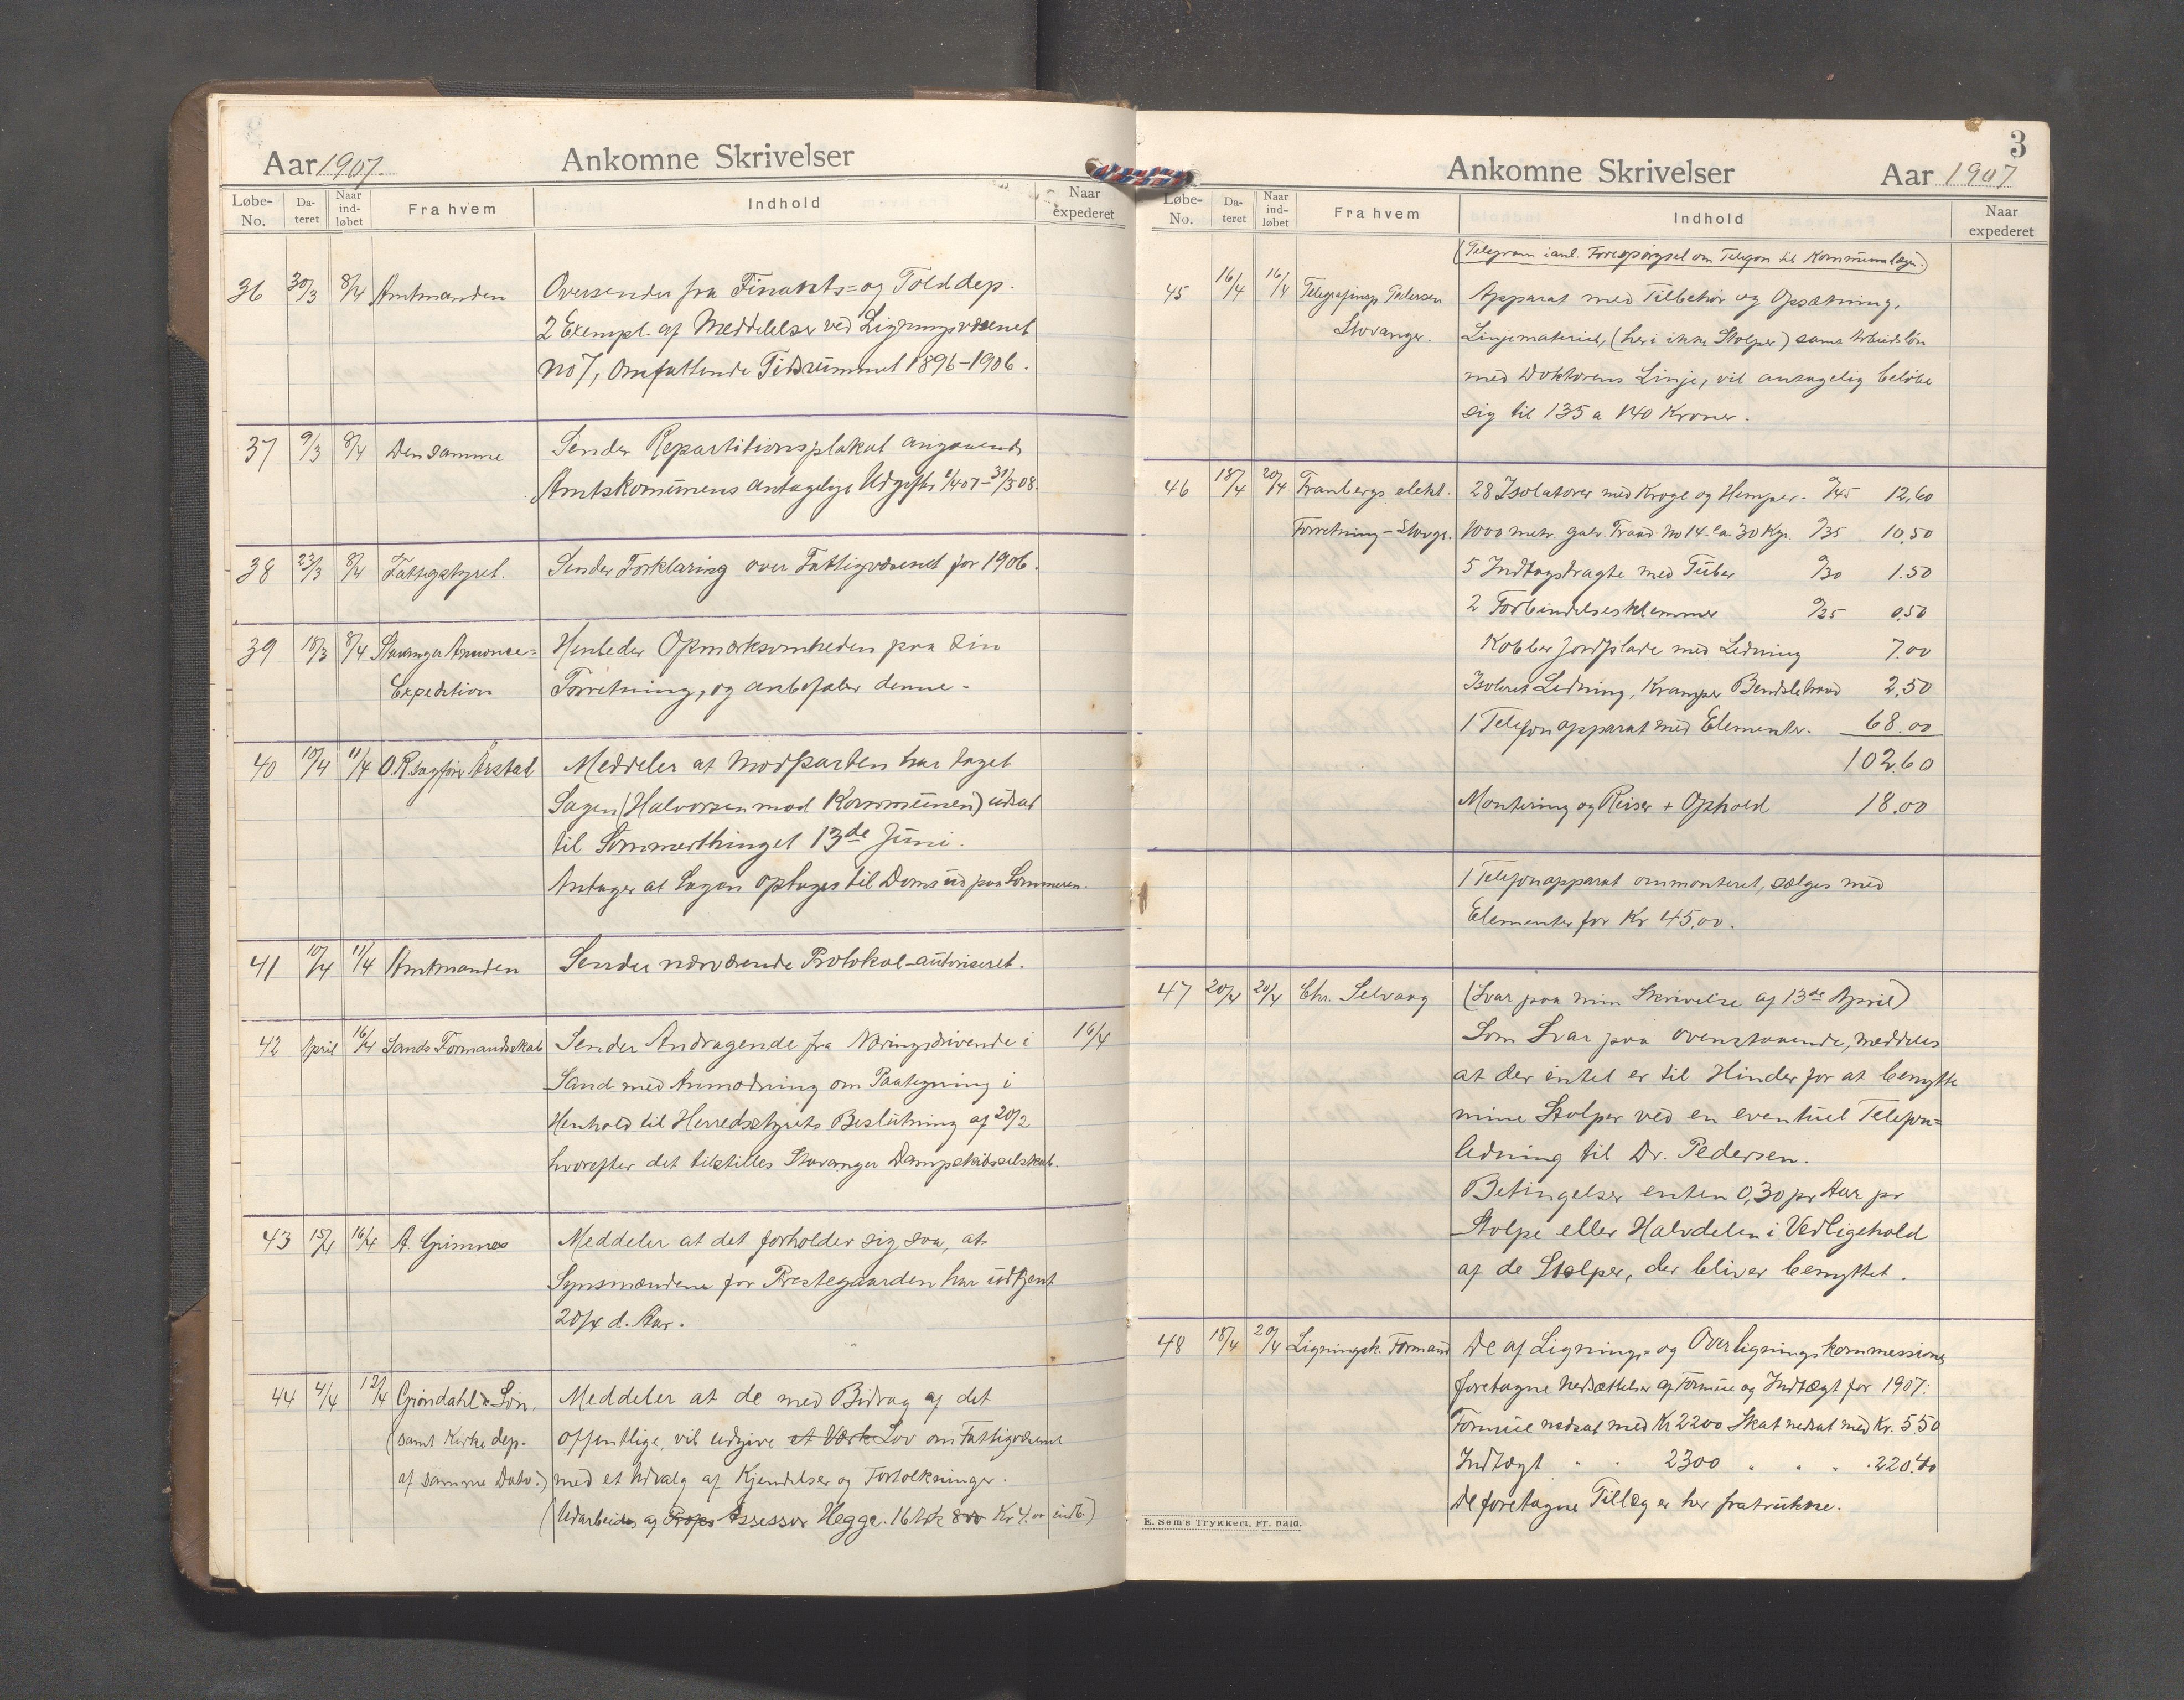 Aar 1907. Ankomne Skrivelser
Løbe-No. Dateret Naar indløbet Fra hvem Indhold Naar expederet
36 30/3 8/4 Amtmanden Oversender fra Finants= og Tolddep.
2 Exempl. af Meddelelser ved Ligningsvæsenet
No 7, Omfattende Tidsrummet 1896-1906.
37 9/3 8/4 Den samme Sender Repartitionsplakat angaaende
Amtskommunens antagelige Udgifter 1/4 07 - 31/3 08.
38 23/3 8/4 Fattigstyret. Sender Forklaring over Fattigvæsenet for 1906.
39 18/3 8/4 Stavanger Annonce= Henleder Opmærksomheden paa sin
Expedition Forretning, og anbefaler denne.
40 10/4 11/4 O.R.sagfører Årstad Meddeler at Modparten har taget
Sagen (Halvorsen mod Kommunen) udsat
til Sommerthinget 13de Juni.
Antager at Sagen optages til Doms ud paa Sommeren.
41 10/4 11/4 Amtmanden Sender nærværende Protokol autoriseret.
42 April 16/4 Sands Formandskab Sender Andragende fra Næringsdrivende i 16/4
Sand med Anmodning om Paategning i
Henhold til Herredsstyrets Beslutning af 20/2
hvorefter det tilstilles Stavanger Dampskibsselskab.
43 15/4 16/4 A. Grimnes Meddeler at det forholder sig saa, at
Synsmændene for Prestegaarden har udtjent
20/4 d. Aar.
44 4/4 12/4 Grøndahl & Søn. Meddeler at de med Bidrag af det
(samt Kirkedep. offentlige, vil udgive et Værk Lov om Fattigvæsenet
af samme Dato.) med et Udvalg af Kjendelser og Fortolkninger.
(Udarbeides af Profes Assessor Hegge. 16 Ark 800 Kr 4.00 indb.)
3
Ankomne Skrivelser Aar 1907
Løbe-No. Dateret Naar indløbet Fra hvem Indhold Naar expederet
(Telegram i anl. Forespørgsel om Telefon til Kommunelægen.)
45 16/4 16/4 Telegrafinsp Pedersen Apparat med Tilbehør og Opsætning,
Stavanger. Linjemateriel, (heri ikke Stolper) samt Arbeidsløn
med Doktorens Linje, vil antagelig beløbe
sig til 135 a 140 Kroner.
46 18/4 20/4 Tranbergs elekt. 28 Isolatorer med Kroge og Hemper. 45 12,60
Forretning - Stavgr. 1000 metr. galv. Traad No 14. ca. 30 Kgr. 35 10,50
5 Indtagstragte med Tuber 30 1.50
2 Forbindelsesklemmer 25 0,50
Kobber Jordplade med Ledning 7.00
Isoleret Ledning, Kramper Bendsletraad 2.50
1 Telefonapparat med Elementer. 68.00
102.60
Montering og Reiser + Ophold 18.00
1 Telefonapparat ommonteret, sælges med
Elementer for Kr 45,00.
47 20/4 20/4 Chr. Selvaag (Svar paa min Skrivelse af 13de April)
Som Svar paa ovenstaaende, meddeles
at der intet er til Hinder for at benytte
mine Stolper ved en eventuel Telefon=
ledning til Dr. Pedersen.
Betingelser enten 0,30 pr Aar pr
Stolpe eller Halvdelen i Vedligehold
af de Stolper, der bliver benyttet.
48 18/4 20/4 Ligningsk. Formand De af Lignings= og Overligningskommessionen
foretagne Nedsættelser af Formue og Indtægt for 1907.
Formue nedsat med Kr 2200 Skat nedsat med Kr. 5.50
Indtægt " " 2300 " " " " 220.40
De foretagne Tillæg er her fratrukne.
E. Sem's Trykkeri, Fr. hald.